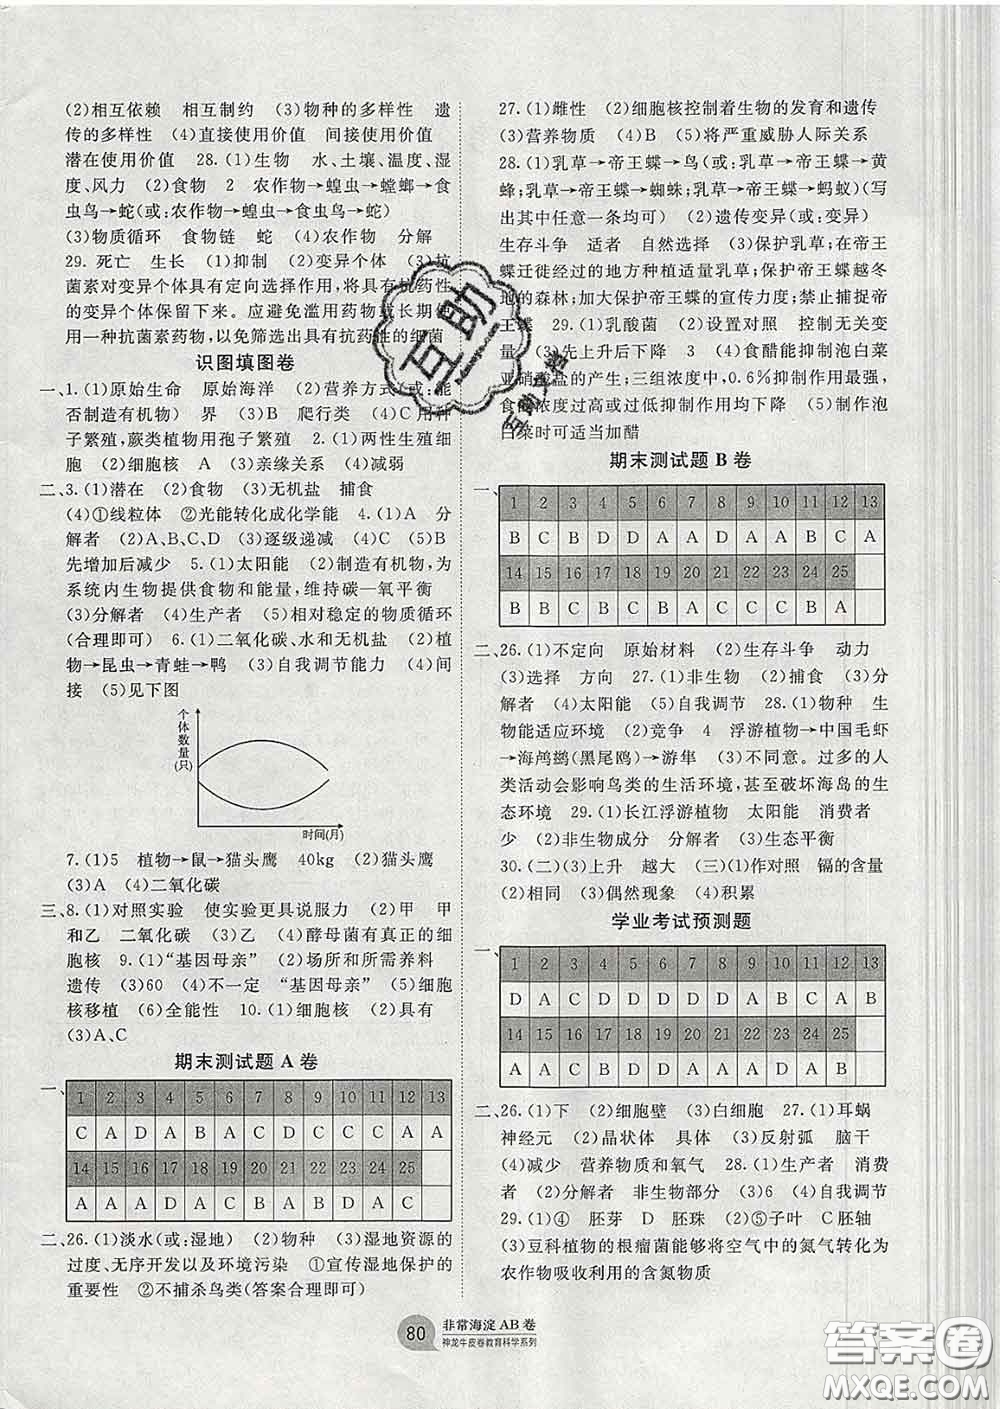 (2)相互依赖　相互制约　(3)物种的多样性　遗
传的多样性　(4)直接使用价值　间接使用价值
潜在使用价值　28.(1)生物　水、土壤、温度、湿
度、风力　(2)食物　2　农作物→蝗虫→螳螂→食
虫鸟→蛇(或:农作物→蝗虫→食虫鸟→蛇)
(3)物质循环　食物链　蛇　(4)农作物　分解
29. 死亡　生长　(1)抑制　(2)变异个体　(3)抗
菌素对变异个体具有定向选择作用,将具有抗药性
的变异个体保留下来。应避免滥用药物或长期使
用一种抗菌素药物,以免筛选出具有抗药性的细菌
识图填图卷
一、1.(1)原始生命　原始海洋　(2)营养方式(或:能
否制造有机物)　界　(3)B　爬行类　(4)C用种
子繁殖,蕨类植物用孢子繁殖　2.(1)两性生殖细
胞　(2)细胞核　A　(3)亲缘关系　(4)减弱
二、3.(1)潜在　(2)食物　(3)无机盐　捕食
(4)①线粒体　②光能转化成化学能　4.(1)A　分
解者　(2)A、B、C、D　(3)逐级递减　(4)C　(5)B
先增加后减少　5.(1)太阳能　(2)制造有机物,为
系统内生物提供食物和能量,维持碳—氧平衡
(3)分解者　(4)生产者　(5)相对稳定的物质循环
(合理即可)　6.(1)二氧化碳、水和无机盐　(2)植
物→昆虫→青蛙→鸭　(3)自我调节能力　(4)间
接　(5)见下图
个体数量(只)
时间(月)
7.(1)5　植物→鼠→猫头鹰　40kg　(2)猫头鹰
(3)A　(4)二氧化碳
三、8.(1)对照实验　使实验更具说服力　(2)甲　甲
和乙　二氧化碳　(3)乙　(4)酵母菌有真正的细
胞核　9.(1)“基因母亲”　(2)场所和所需养料
遗传　(3)60　(4)不一定　“基因母亲”　(5)细胞
核移植　(6)全能性　10.(1)细胞核　(2)具有
(3)A、C
期末测试题 A 卷
一、1 2 3 4 5 6 7 8 9 10 11 12 13
C A D A B A C D C C C A A
14 15 16 17 18 19 20 21 22 23 24 25
A A A D A C B A B D A C
二、26.(1)淡水(或:湿地)　(2)物种　(3)湿地资源的
过度、无序开发以及环境污染　①宣传湿地保护的
重要性　②不捕杀鸟类(答案合理即可)
27.(1)雌性　(2)细胞核控制着生物的发育和遗传
(3)营养物质　(4)B　(5)将严重威胁人际关系
28.(1)乳草→帝王蝶→鸟(或:乳草→帝王蝶→黄
蜂;乳草→帝王蝶→蜘蛛;乳草→帝王蝶→蚂蚁)(写
出其中任意一条均可)　(2)遗传变异(或:变异)
生存斗争　适者　自然选择　(3)保护乳草;在帝王
蝶迁徙经过的地方种植适量乳草;保护帝王蝶越冬
地的森林;加大保护帝王蝶的宣传力度;禁止捕杀帝
王蝶　29.(1)乳酸菌　(2)设置对照　控制无关变
量　(3)先上升后下降　3　(4)食醋能抑制泡白菜
亚硝酸盐的产生;三组浓度中,0.6%抑制作用最强,
食醋浓度过高或过低抑制作用均下降　(5)制作泡
白菜时可适当加醋
期末测试题 B 卷
一、1 2 3 4 5 6 7 8 9 10 11 12 13
B C B D D A A D A A B C A
14 15 16 17 18 19 20 21 22 23 24 25
B B C B C C B A C C B A
二、26.(1)不定向　原始材料　(2)生存斗争　动力
(3)选择　方向　27.(1)非生物　(2)捕食　(3)分
解者　(4)太阳能　(5)自我调节　28.(1)物种　生
物能适应环境　(2)竞争　4　浮游植物→中国毛虾
→海鸬鹚(黑尾鸥)→游隼　(3)不同意。过多的人
类活动会影响鸟类的生活环境,甚至破坏海岛的生
态环境　29.(1)长江浮游植物　太阳能　消费者
少　(2)非生物成分　分解者　(3)生态平衡
30.(二)(3)上升　越大　(三)(1)作对照　镉的含量
(2)相同　(3)偶然现象　(4)积累
学业考试预测题
一、1 2 3 4 5 6 7 8 9 10 11 12 13
D A C D D D D D A B C A B
14 15 16 17 18 19 20 21 22 23 24 25
A A C D B D A A C A B D
二、26.(1)下　(2)细胞壁　(3)白细胞　27.(1)耳蜗
神经元　(2)晶状体　具体　(3)反射弧　脑干
(4)减少　营养物质和氧气　28.(1)生产者　消费
者　(2)分解者　非生物部分　(3)6　(4)自我调节
29.(1)④　胚芽　D　胚珠　(2)⑤子叶　C胚轴
(3)豆科植物的根瘤菌能够将空气中的氮气转化为
农作物吸收利用的含氮物质
80
非常海淀 AB 卷
神龙牛皮卷教育科学系列
互助
互助文档
答案圈
MXQE.COM